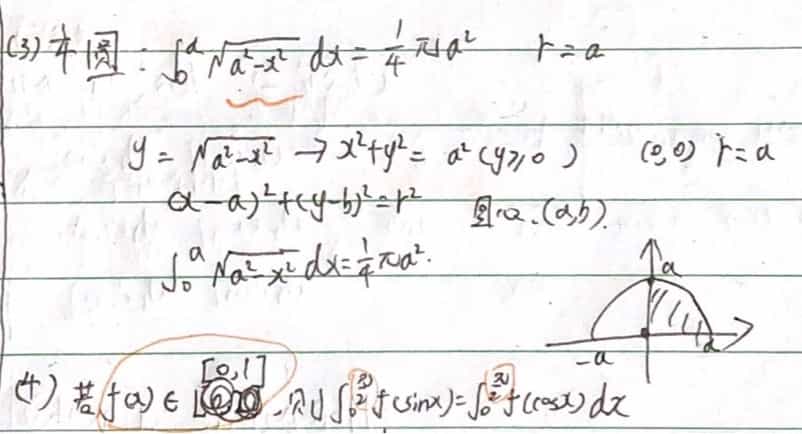 (3) 1/4圆: ∫₀ᵃ √(a²-x²) dx = 1/4 πa² r=a
y = √(a²-x²) → x²+y² = a² (y≥0) (0,0) r=a
(x-a)²+(y-b)²=r² 圆心(a,b).
∫₀ᵃ √(a²-x²) dx = 1/4 πa².
a
-a a
[0,1]
(4) 若 f(x) ∈ , 则 ∫₀^(π/2) f(sinx) = ∫₀^(π/2) f(cosx) dx